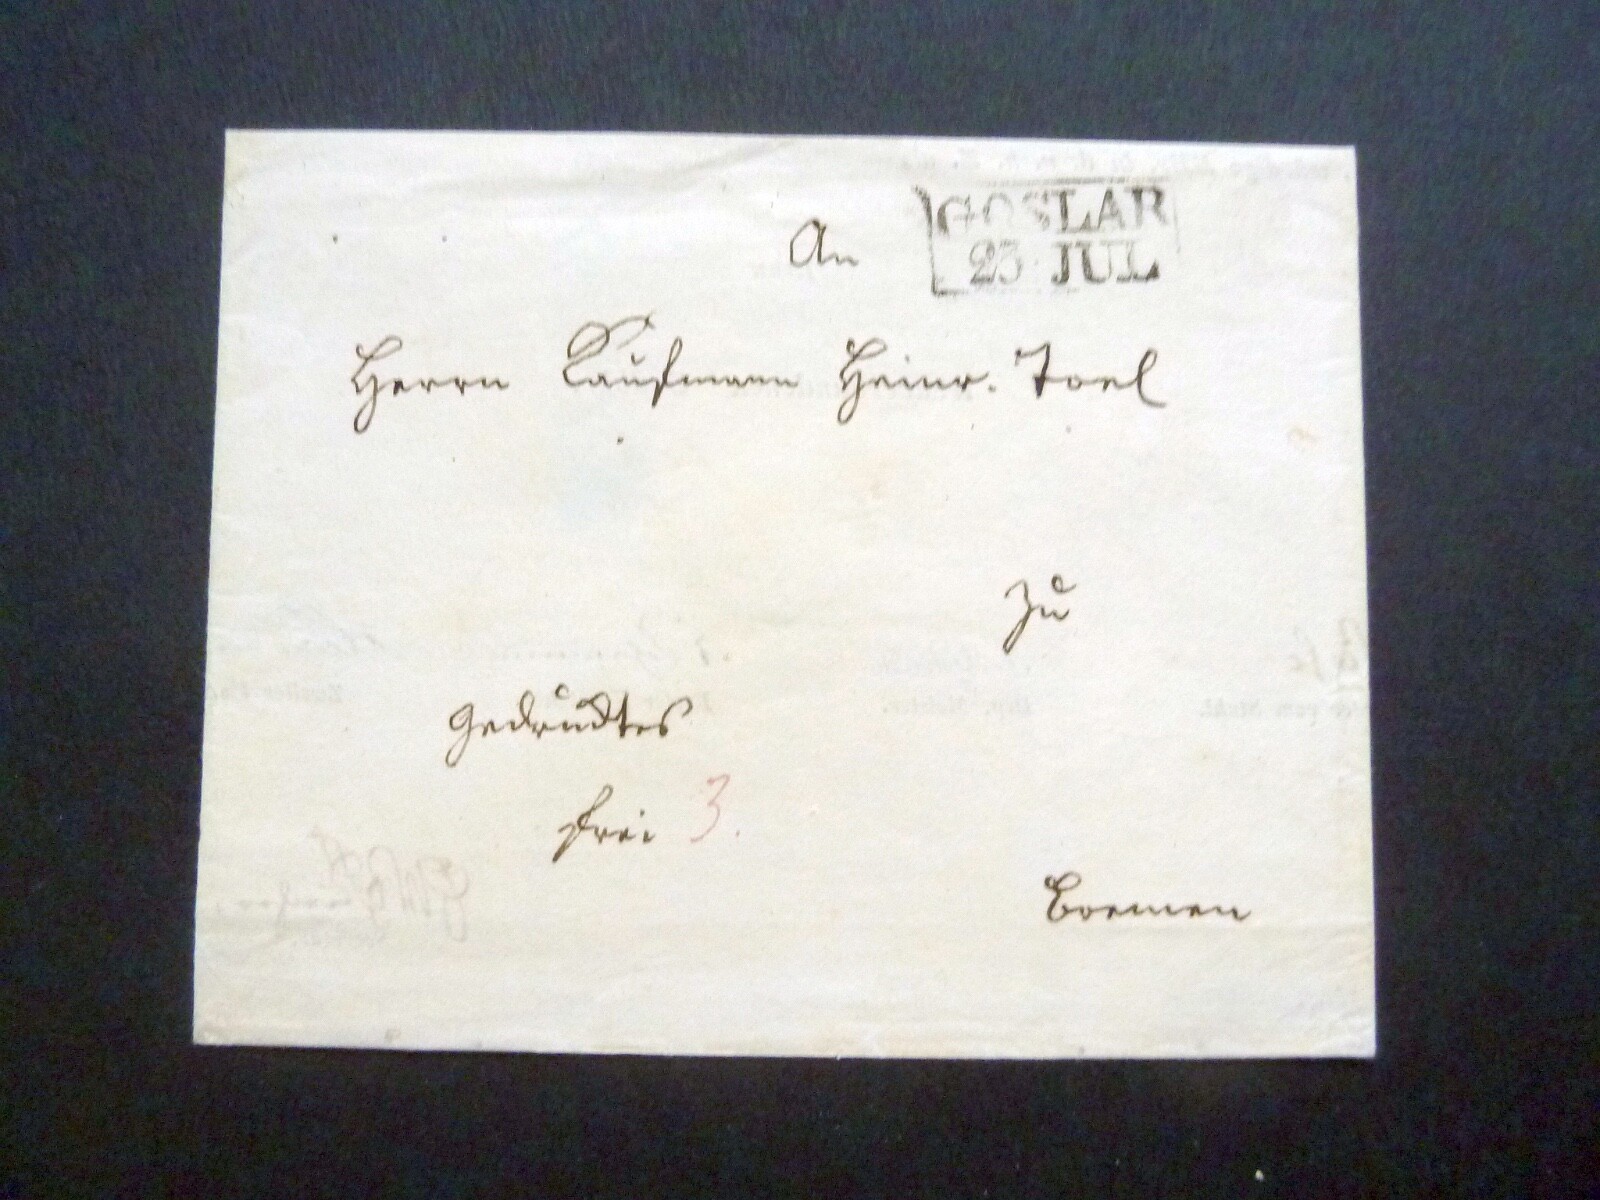 GOSLAR
25 JUL
An
Herrn Kaufmann Heinr. Toel
zu
Gedrucktes
frei 3.
Bremen